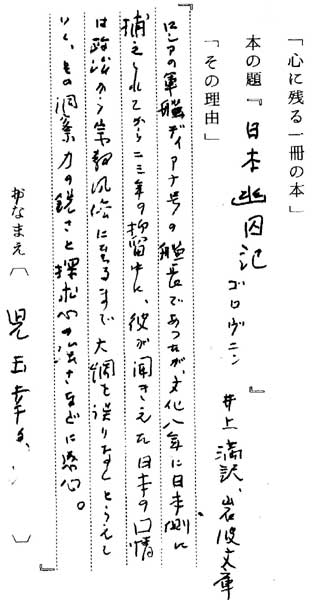 「心に残る一冊の本」
本の題『日本幽囚記』
ゴロヴニン 井上満訳、岩波文庫
「その理由」
『ロシアの軍艦ディアナ号の艦長であつたが、文化八年に日本側に
捕えられてから二三年の抑留中に、彼が聞きえた日本の国情
は政治から宗教風俗に至るまで大綱を誤りなくとらえて
いて、その洞察力の鋭さと探求心の
さなどに感心。』
おなまえ〔児玉幸多〕